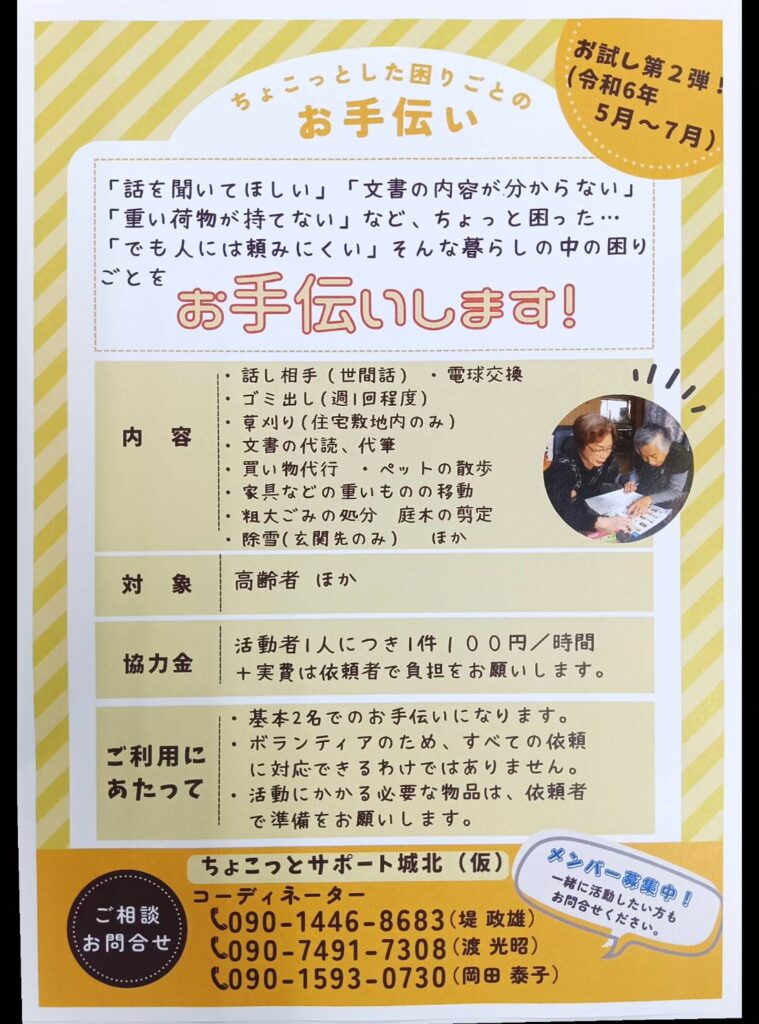 お試し第2弾!
(令和6年
5月～7月)
ちょこっとした困りごとの
お手伝い
「話を聞いてほしい」「文書の内容が分からない」
「重い荷物が持てない」など、ちょっと困った…
「でも人には頼みにくい」そんな暮らしの中の困り
ごとを
お手伝いします!
内 容
・話し相手(世間話) ・電球交換
・ゴミ出し(週1回程度)
・草刈り(住宅敷地内のみ)
・文書の代読、代筆
・買い物代行 ・ペットの散歩
・家具などの重いものの移動
・粗大ごみの処分 庭木の剪定
・除雪(玄関先のみ) ほか
対 象
高齢者 ほか
協力金
活動者1人につき1件100円/時間
+実費は依頼者で負担をお願いします。
ご利用に
あたって
・基本2名でのお手伝いになります。
・ボランティアのため、すべての依頼
に対応できるわけではありません。
・活動にかかる必要な物品は、依頼者
で準備をお願いします。
ちょこっとサポート城北(仮)
ご相談
お問合せ
コーディネーター
090-1446-8683(堤 政雄)
090-7491-7308(渡 光昭)
090-1593-0730(岡田 泰子)
メンバー募集中!
一緒に活動したい方も
お問合せください。